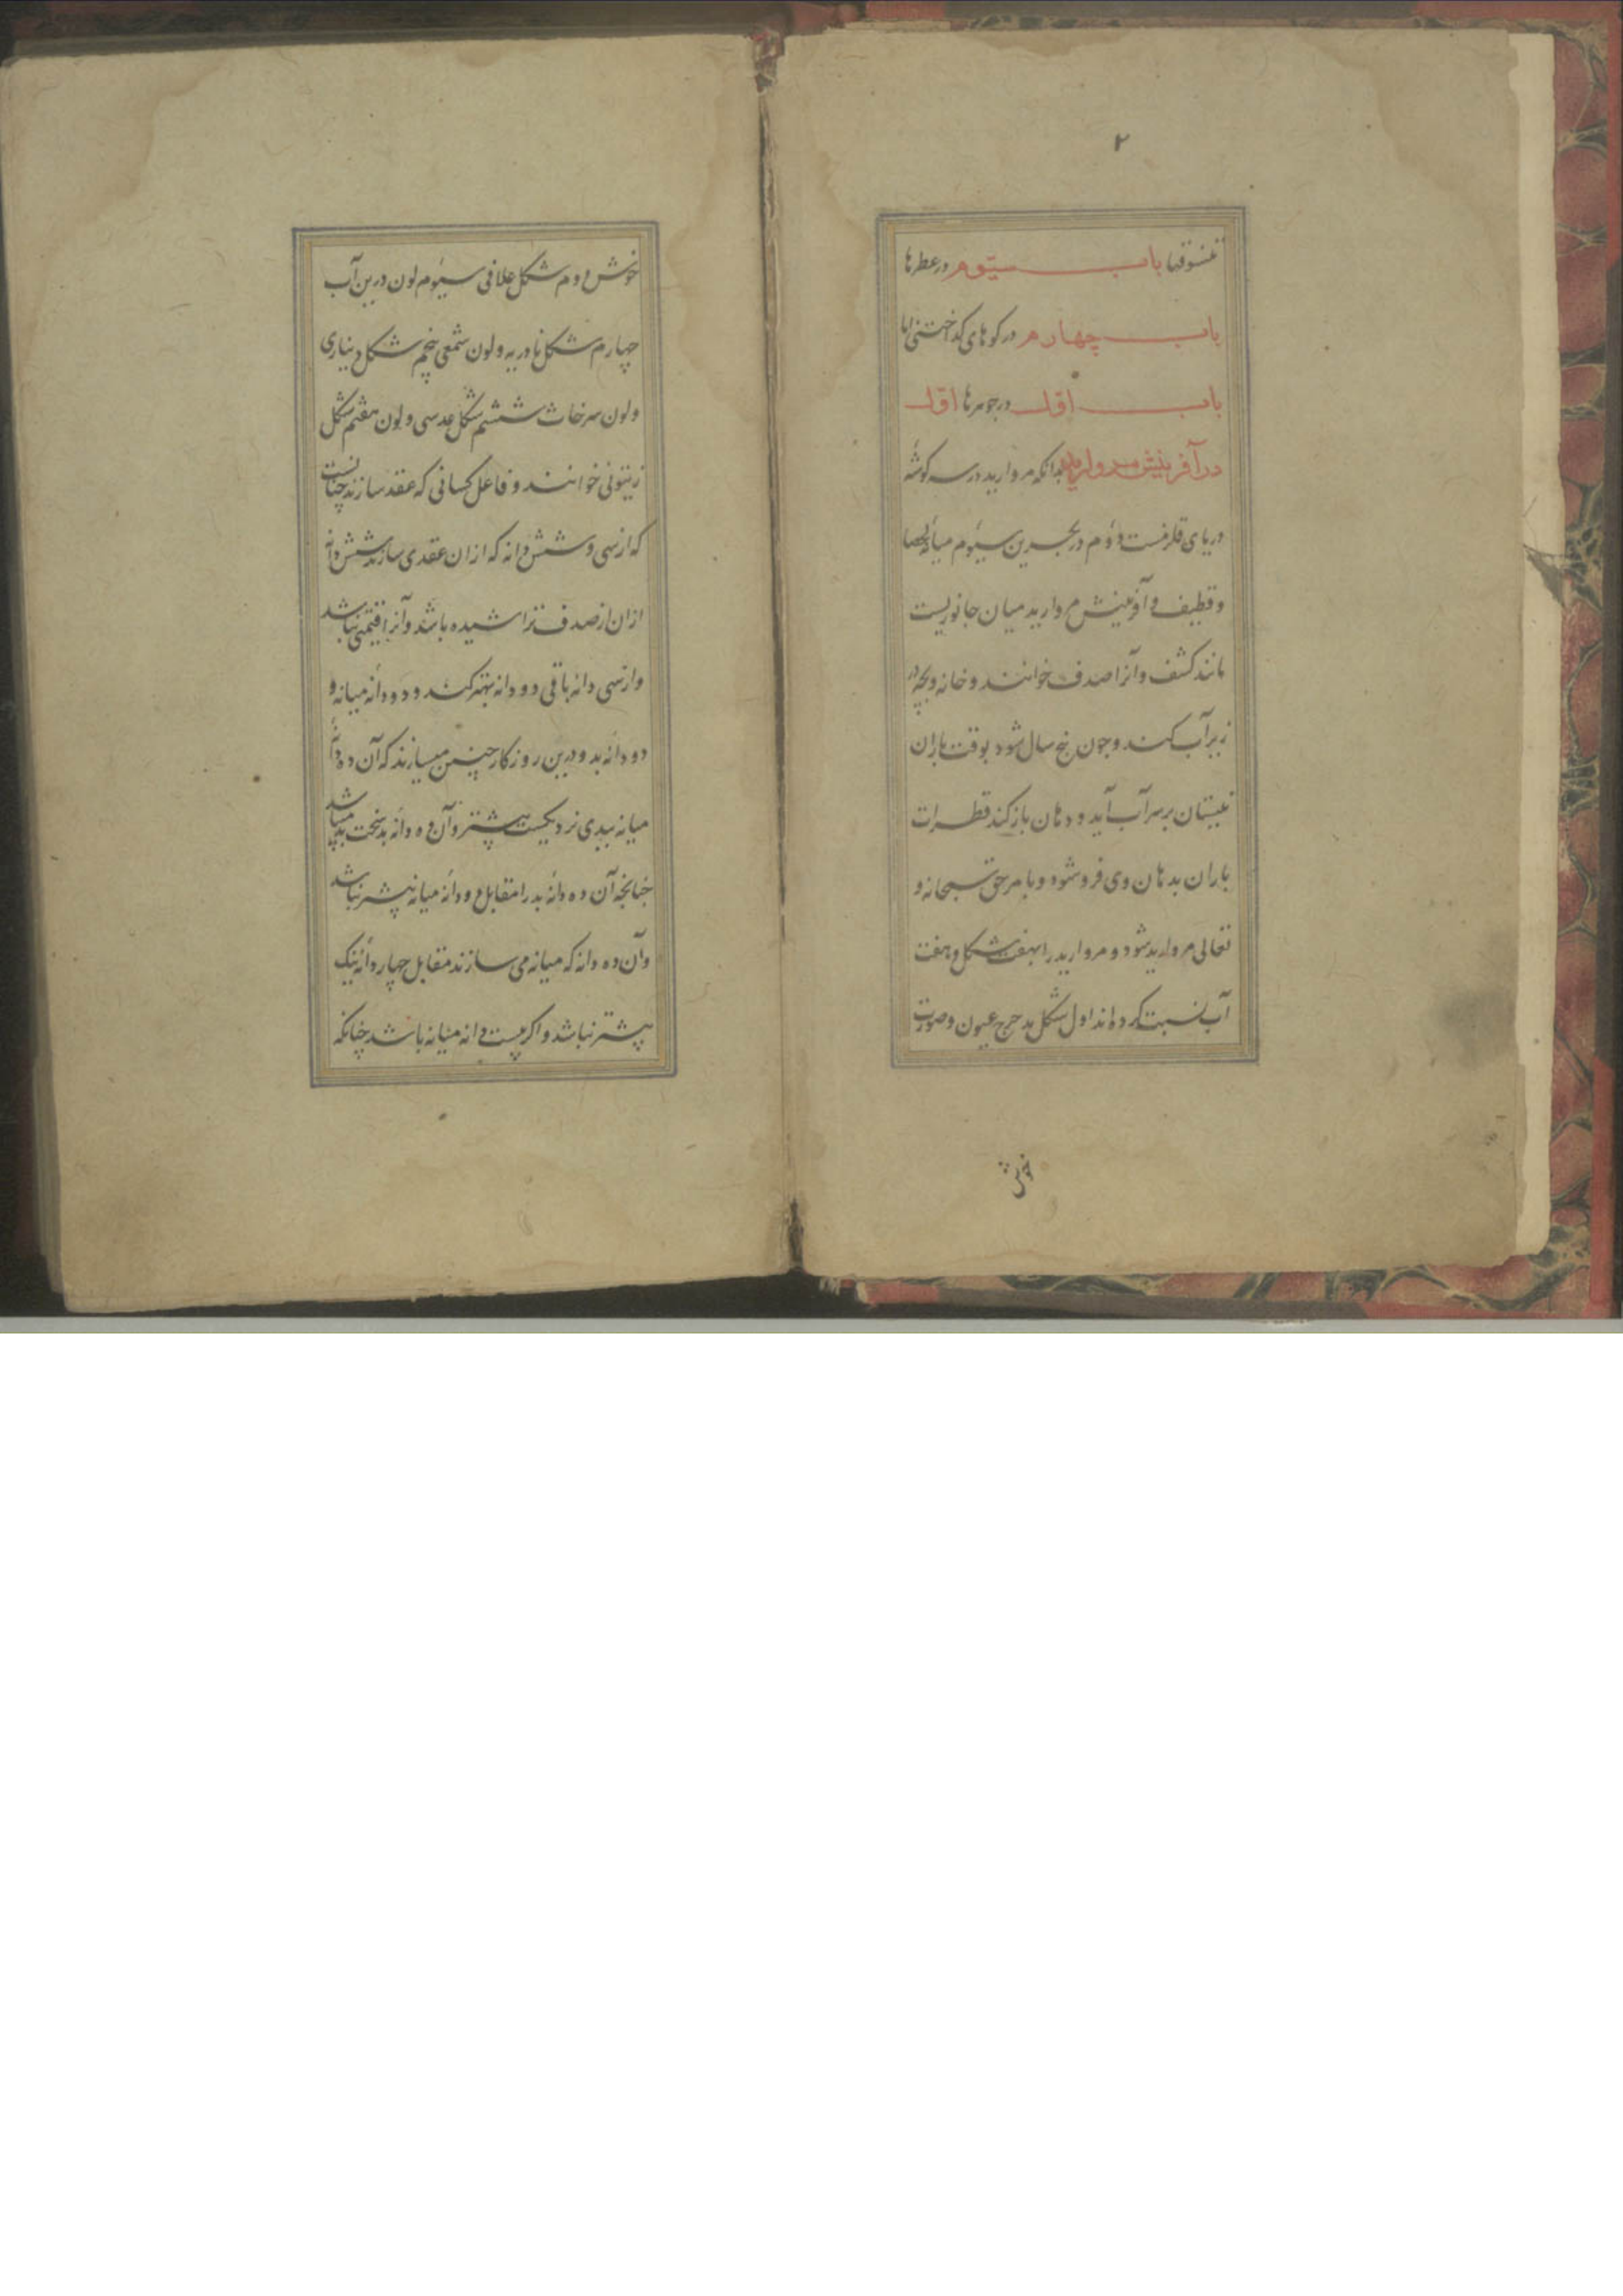 ۲
تنسوقها باب سیّوم در عطرها
باب چهارم در کوهای کداختنی اما
باب اوّل در جوهرها اوّل
در آفرینش مروارید بدانکه مروارید در سه کوشهٔ
دریای قلزمست دوم در بحرین سیوم میانهٔ لحصا
و قطیف و آفرینش مروارید میان جانوریست
مانند کشف و آنرا صدف خوانند و خانه و بچه در
زیر آب کند و چون پنج سال شود بوقت باران
نیستان بر سر آب آید و دهان باز کند قطرات
باران بدهان وی فرو شود و بامر حق سبحانه و
تعالی مروارید شود و مروارید را بهفت شکل و هفت
آب نسبت کرده‌اند اول شکل مدحرج عیون و صورت
خوش
خوش دوم شکل غلافی سیوم لون درین آب
چهارم شکل نادریه و لون شمعی پنجم شکل دیناری
و لون سرخاث ششم شکل عدسی و لون هفتم شکل
زیتونی خوانند و فاعل کسانی که عقد سازند چنانست
که از سی و شش دانه که از ان عقدی سازند شش دانه
ازان از صدف تراشیده باشد و آنرا قیمتی نباشد
و از سی دانه باقی دو دانه بهتر کنند و دو دانهٔ میانه و
دو دانهٔ بد و درین روزکار چنین میسازند که آن ده دانهٔ
میانه ببدی نزدیکست بیشتر و آن ده دانهٔ بد سخت بد میباشد
چنانچه آن ده دانهٔ بد را مقابل دو دانهٔ میانه بیشتر نباشد
و آن ده دانه که میانه می سازند مقابل چهار دانهٔ نیک
بیشتر نباشد و اکر بیست دانه میانه باشد چنانکه